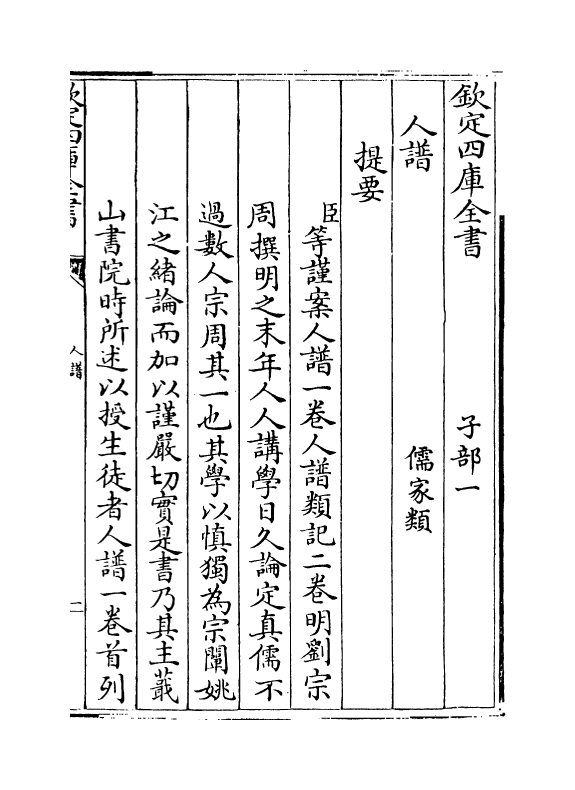 欽定四庫全書　子部一
人譜　儒家類
提要
臣等謹案人譜一卷人譜類記二卷明劉宗
周撰明之末年人人講學日久論定真儒不
過數人宗周其一也其學以慎獨為宗闡姚
江之緒論而加以謹嚴切實是書乃其主蕺
山書院時所述以授生徒者人譜一卷首列
欽定四庫全書
人譜